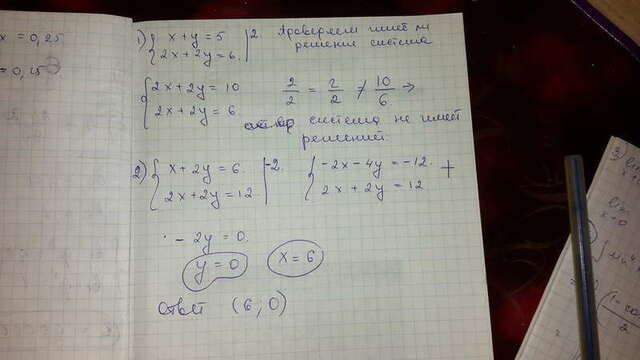 x = 0,25
= 0,15
1) { x + y = 5 | 2
2x + 2y = 6.
Проверяем имеет ли
решения система
{ 2x + 2y = 10
2x + 2y = 6
2/2 = 2/2 ≠ 10/6 →
система не имеет
решений.
2) { x + 2y = 6. | -2.
2x + 2y = 12
{ -2x - 4y = -12. +
2x + 2y = 12
- 2y = 0.
y = 0 x = 6
Ответ (6 ; 0)
3) lim
lim
x→0